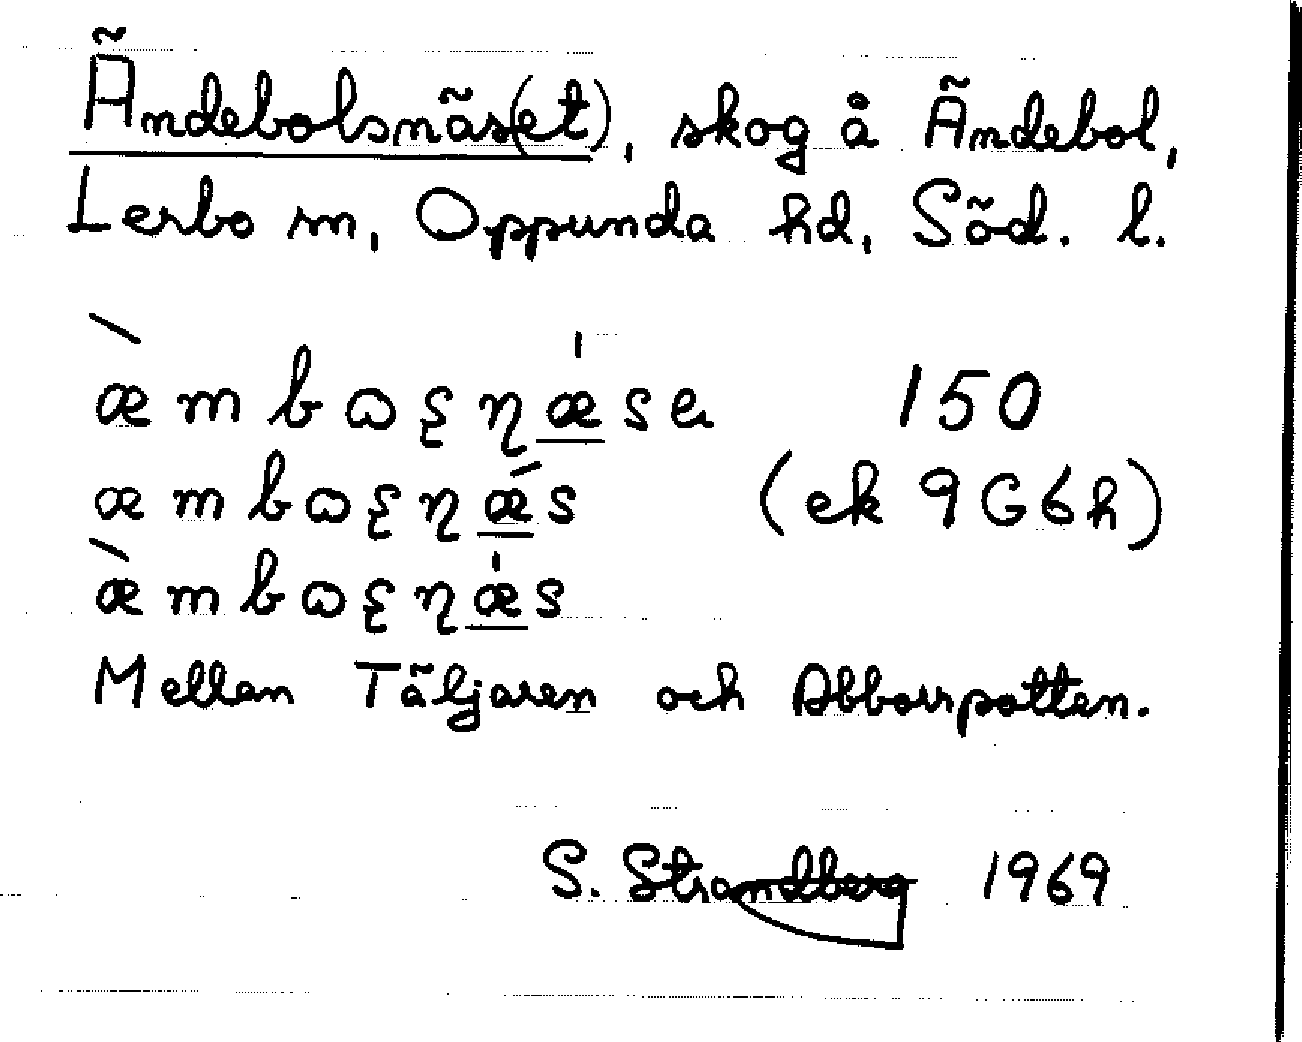 Ändebolsnäs(et), skog å Ändebol,
Lerbo sn, Oppunda hd, Söd. l.
æ̀mbꞷʂɳǽ̲se 150
æmbꞷʂɳǽ̲s (ek 9G6h)
æ̀mbꞷʂɳǽ̲s
Mellan Täljaren och Abborrpotten.
S. Strandberg 1969